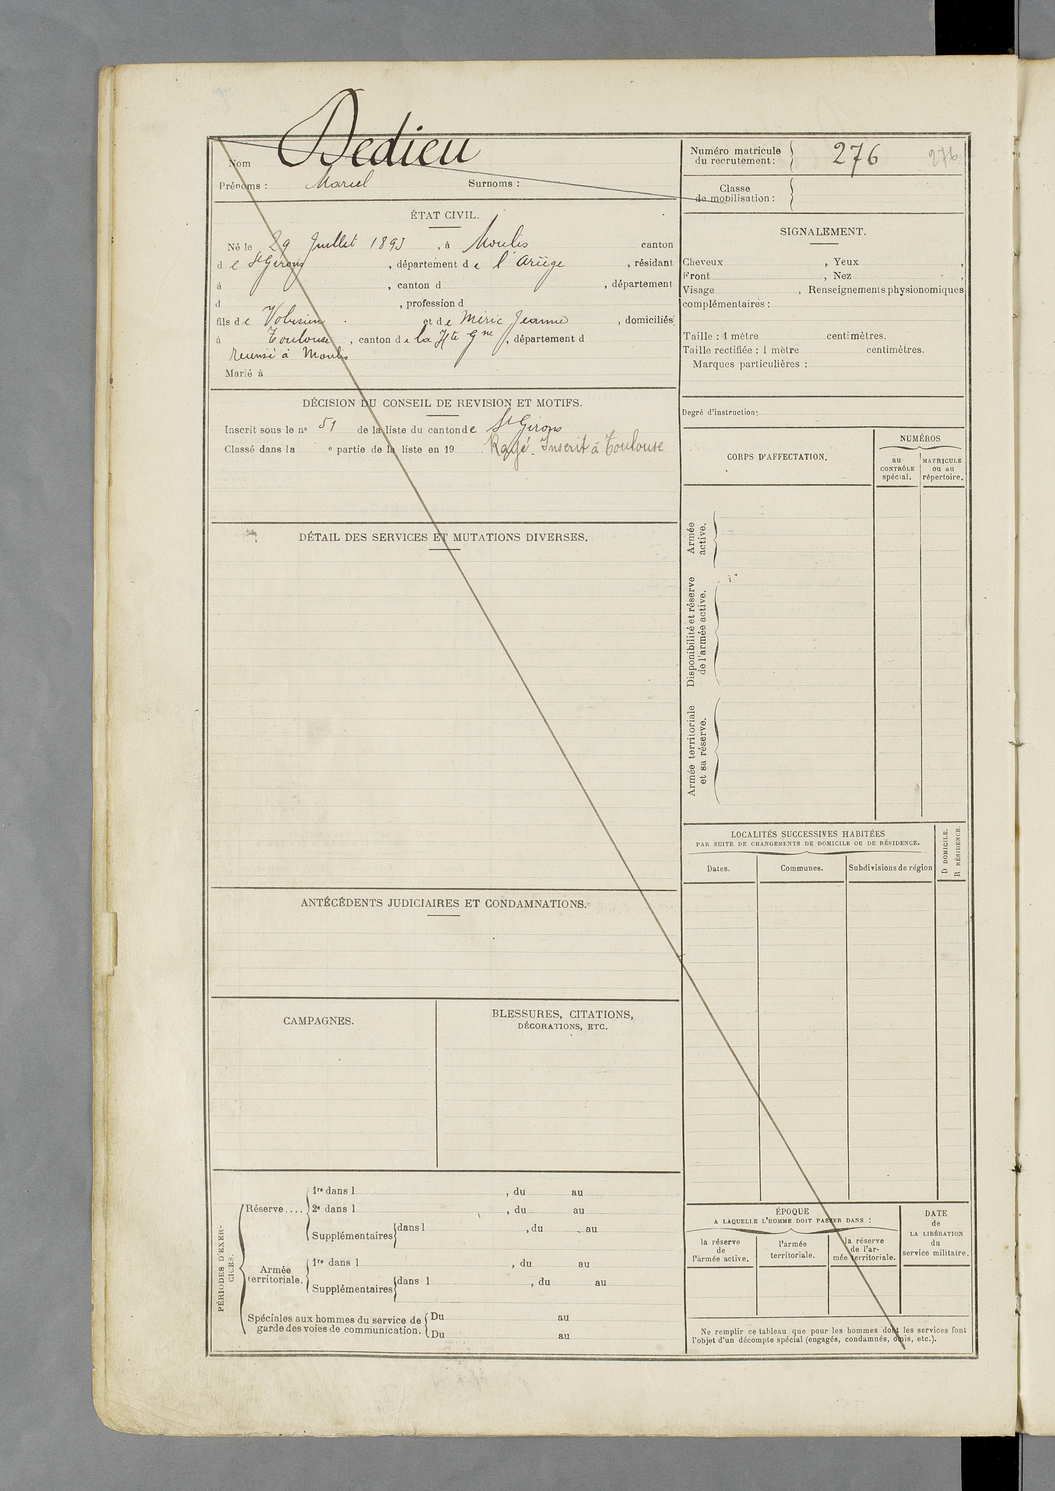 Nom Dedieu
Prénoms : Marcel Surnoms :
Numéro matricule
du recrutement : 276 276
Classe
de mobilisation :
ÉTAT CIVIL.
Né le 29 Juillet 1893, à Moulis canton
de St Girons, département de l'Ariège, résidant
à , canton d , département
d , profession d
fils de Volusien et de Méric Jeanne, domiciliés
à Toulouse, canton de la Hte Gne, département d
recensé à Moulis
Marié à
DÉCISION DU CONSEIL DE REVISION ET MOTIFS.
Inscrit sous le n° 51 de la liste du canton de St Girons
Classé dans la e partie de la liste en 19 Rayé. Inscrit à Toulouse
DÉTAIL DES SERVICES ET MUTATIONS DIVERSES.
ANTÉCÉDENTS JUDICIAIRES ET CONDAMNATIONS.
CAMPAGNES.
BLESSURES, CITATIONS,
DÉCORATIONS, ETC.
PÉRIODES D'EXER-
CICES.
Réserve....
1re dans l , du au
2e dans l , du au
Supplémentaires dans l , du au
Armée
territoriale.
1re dans l , du au
Supplémentaires dans l , du au
Spéciales aux hommes du service de
garde des voies de communication.
Du au
Du au
SIGNALEMENT.
Cheveux , Yeux ,
Front , Nez
Visage , Renseignements physionomiques
complémentaires :
Taille : 1 mètre centimètres.
Taille rectifiée : 1 mètre centimètres.
Marques particulières :
Degré d'instruction :
CORPS D'AFFECTATION.
NUMÉROS
au
CONTRÔLE
spécial.
MATRICULE
ou au
répertoire.
Armée
active.
Disponibilité et réserve
de l'armée active.
Armée territoriale
et sa réserve.
LOCALITÉS SUCCESSIVES HABITÉES
PAR SUITE DE CHANGEMENTS DE DOMICILE OU DE RÉSIDENCE.
D DOMICILE.
R RÉSIDENCE.
Dates. Communes. Subdivisions de région
ÉPOQUE
A LAQUELLE L'HOMME DOIT PASSER DANS :
la réserve
de
l'armée active.
l'armée
territoriale.
la réserve
de l'ar-
mée territoriale.
DATE
de
LA LIBÉRATION
du
service militaire.
Ne remplir ce tableau que pour les hommes dont les services font
l'objet d'un décompte spécial (engagés, condamnés, omis, etc.).